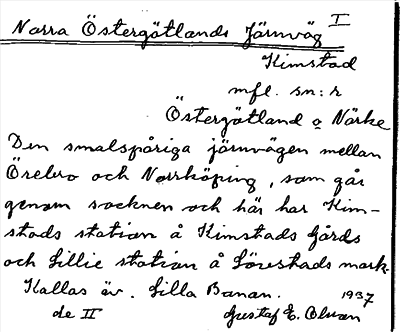 Norra Östergötlands Järnväg I
Kimstad
mfl. sn:r
Östergötland o Närke
Den smalspåriga järnvägen mellan
Örebro och Norrköping, som går
genom socknen och här har Kim-
stads station å Kimstads Gårds
och Lillie station å Lövestads mark.
Kallas äv. Lilla Banan. 1937
de II Gustaf E. Olsson